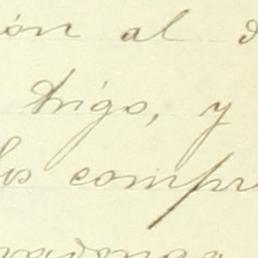 ión al d
trigo, y
los compr